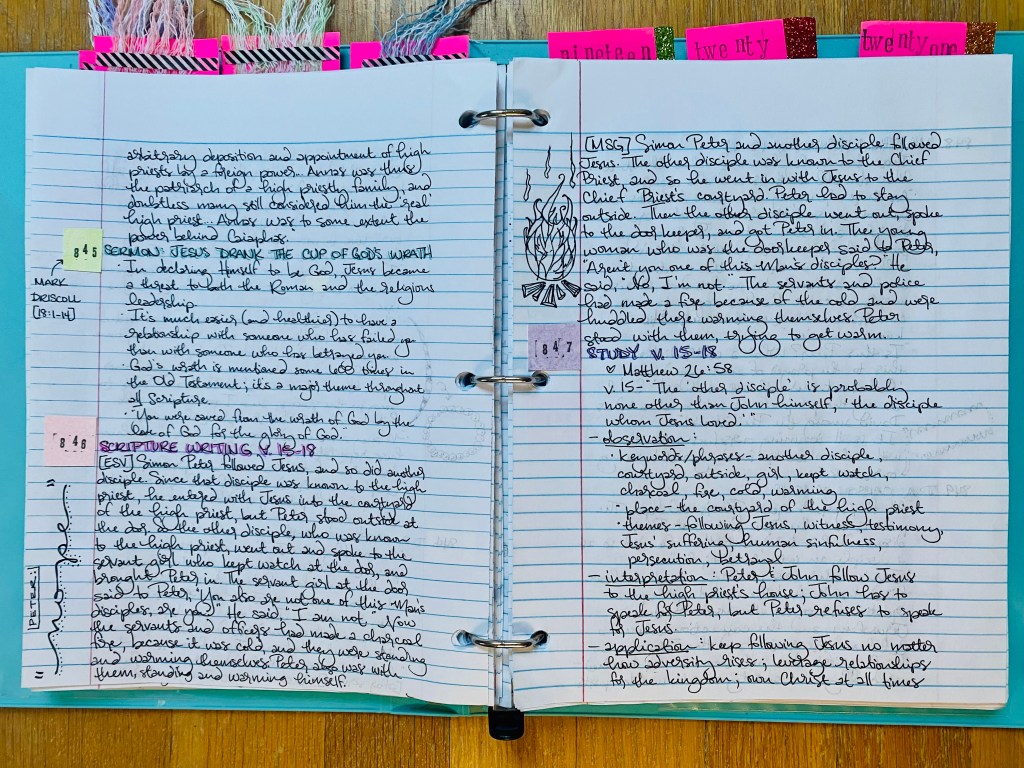 nineteen
twenty
twenty one
arbitrary deposition and appointment of high
priests by a foreign power. Annas was thus
the patriarch of a high priestly family, and
doubtless many still considered him the 'real'
high priest. Annas was to some extent the
power behind Caiaphas.
845
SERMON: JESUS DRANK THE CUP OF GOD'S WRATH
MARK
DRISCOLL
[18:1-14]
· In declaring Himself to be God, Jesus became
a threat to both the Roman and the religious
leadership.
· It's much easier (and healthier) to have a
relationship with someone who has failed you
than with someone who has betrayed you.
· God's wrath is mentioned some 600 times in
the Old Testament; it's a major theme throughout
all Scripture.
· "You were saved from the wrath of God by the
love of God for the glory of God."
846
SCRIPTURE WRITING V. 15-18
[ESV] Simon Peter followed Jesus, and so did another
disciple. Since that disciple was known to the high
priest, he entered with Jesus into the courtyard
of the high priest, but Peter stood outside at
the door. So the other disciple, who was known
to the high priest, went out and spoke to the
servant girl who kept watch at the door, and
brought Peter in. The servant girl at the door
said to Peter, "You also are not one of this Man's
disciples, are you?" He said, "I am not." Now
the servants and officers had made a charcoal
fire, because it was cold, and they were standing
and warming themselves. Peter also was with
them, standing and warming himself.
PETER:
[MSG] Simon Peter and another disciple followed
Jesus. The other disciple was known to the Chief
Priest and so he went in with Jesus to the
Chief Priest's courtyard. Peter had to stay
outside. Then the other disciple went out, spoke
to the doorkeeper, and got Peter in. The young
woman who was the doorkeeper said to Peter,
"Aren't you one of this Man's disciples?" He
said, "No, I'm not." The servants and police
had made a fire because of the cold and were
huddled there warming themselves. Peter
stood with them, trying to get warm.
847
STUDY V. 15-18
♡ Matthew 26:58
v. 15- "The 'other disciple' is probably
none other than John himself, 'the disciple
whom Jesus loved.'"
- observation:
· keywords/phrases- another disciple,
courtyard, outside, girl, kept watch,
charcoal fire, cold, warming
· place- the courtyard of the high priest
· themes- following Jesus, witness testimony,
Jesus' suffering, human sinfulness,
persecution, betrayal
- interpretation: Peter & John follow Jesus
to the high priest's house; John has to
speak for Peter, but Peter refuses to speak
for Jesus.
- application: keep following Jesus no matter
how adversity rises; leverage relationships
for the kingdom; own Christ at all times